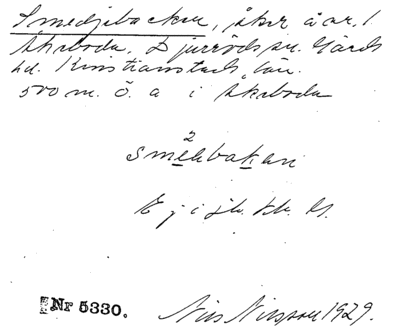 Smedjebacken, åker å nr. 1
Akeboda. Djurröds sn. Gärds
hd. Kristianstads län.
500 m. ö. a i Akeboda
2
smehbakan
Ej i jb. kb. U.
Nr 5330.
Nils Nilsson 1929.